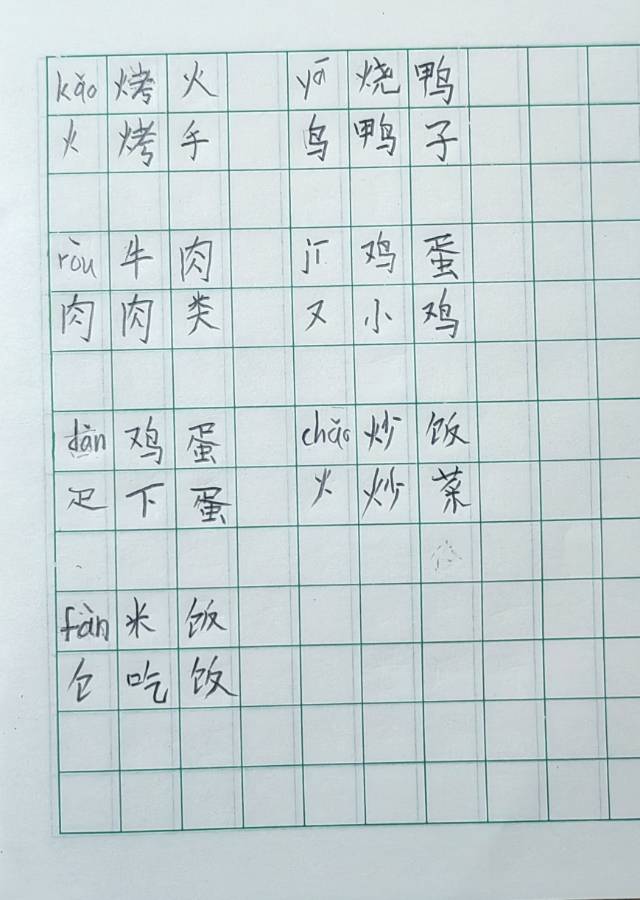 kǎo 烤 火 yā 烧 鸭
火 烤 手 鸟 鸭 子
ròu 牛 肉 jī 鸡 蛋
肉 肉 类 又 小 鸡
dàn 鸡 蛋 chǎo 炒 饭
疋 下 蛋 火 炒 菜
fàn 米 饭
饣 吃 饭